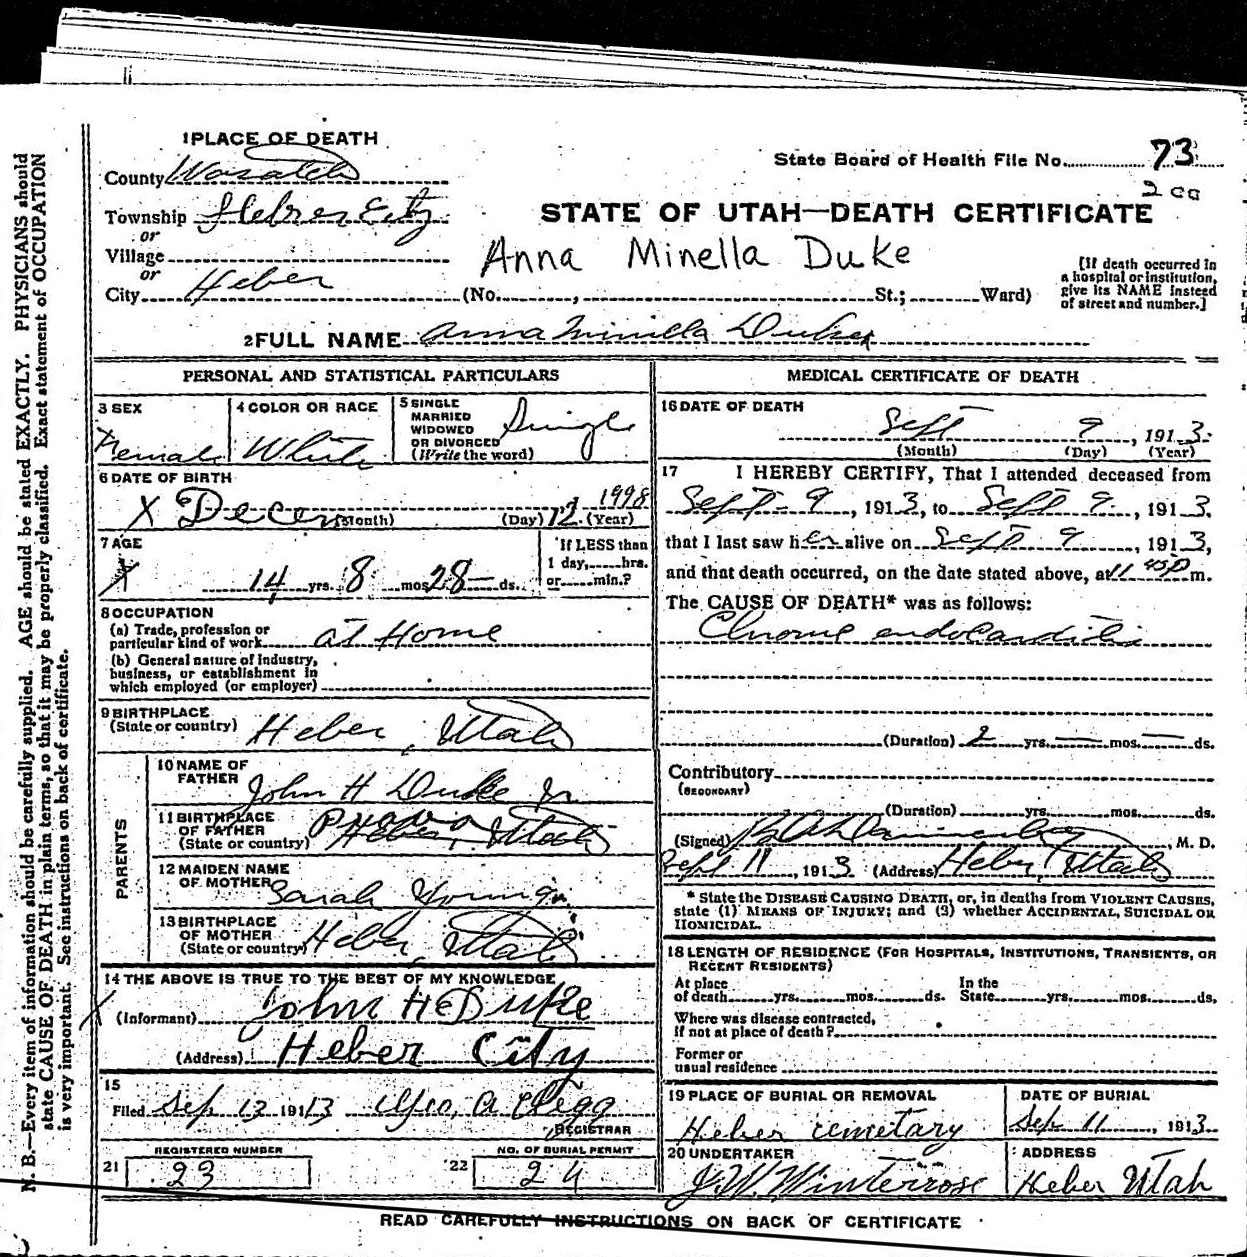 1 PLACE OF DEATH
County Wasatch
Township Heber City
or
Village
or
City Heber
State Board of Health File No. 73
200
STATE OF UTAH—DEATH CERTIFICATE
Anna Minella Duke
(No. , St.; Ward)
[If death occurred in
a hospital or institution,
give its NAME instead
of street and number.]
2 FULL NAME Anna Minella Duke
PERSONAL AND STATISTICAL PARTICULARS
3 SEX
Female
4 COLOR OR RACE
White
5 SINGLE
MARRIED
WIDOWED
OR DIVORCED
(Write the word)
Single
6 DATE OF BIRTH
X Decem (Month) (Day) 12 1998 (Year)
7 AGE
X 14 yrs. 8 mos. 28 ds.
If LESS than
1 day, hrs.
or min.?
8 OCCUPATION
(a) Trade, profession or
particular kind of work at Home
(b) General nature of industry,
business, or establishment in
which employed (or employer)
9 BIRTHPLACE
(State or country) Heber, Utah
PARENTS
10 NAME OF
FATHER John H Duke Jr
11 BIRTHPLACE
OF FATHER
(State or country) Provo Heber, Utah
12 MAIDEN NAME
OF MOTHER Sarah Young
13 BIRTHPLACE
OF MOTHER
(State or country) Heber, Utah
14 THE ABOVE IS TRUE TO THE BEST OF MY KNOWLEDGE
X (Informant) John H Duke
(Address) Heber City
15
Filed Sep 13 1913 Geo. A Clegg
REGISTRAR
REGISTERED NUMBER
21 23
NO. OF BURIAL PERMIT
22 24
MEDICAL CERTIFICATE OF DEATH
16 DATE OF DEATH
Sept 9, 1913.
(Month) (Day) (Year)
17 I HEREBY CERTIFY, That I attended deceased from
Sept 9, 1913, to Sept 9, 1913.
that I last saw her alive on Sept 9, 1913,
and that death occurred, on the date stated above, at 11 45 P m.
The CAUSE OF DEATH* was as follows:
Chronic endocarditis
(Duration) 2 yrs. — mos. — ds.
Contributory
(SECONDARY)
(Duration) yrs. mos. ds.
(Signed) , M. D.
Sept 11, 1913 (Address) Heber, Utah
* State the DISEASE CAUSING DEATH, or, in deaths from VIOLENT CAUSES,
state (1) MEANS OF INJURY; and (2) whether ACCIDENTAL, SUICIDAL OR
HOMICIDAL.
18 LENGTH OF RESIDENCE (FOR HOSPITALS, INSTITUTIONS, TRANSIENTS, OR
RECENT RESIDENTS)
At place
of death yrs. mos. ds.
In the
State yrs. mos. ds.
Where was disease contracted,
if not at place of death?
Former or
usual residence
19 PLACE OF BURIAL OR REMOVAL
Heber cemetary
DATE OF BURIAL
Sep 11, 1913
20 UNDERTAKER
J. W. Winterrose
ADDRESS
Heber Utah
READ CAREFULLY INSTRUCTIONS ON BACK OF CERTIFICATE
N. B.—Every item of information should be carefully supplied. AGE should be stated EXACTLY. PHYSICIANS should
state CAUSE OF DEATH in plain terms, so that it may be properly classified. Exact statement of OCCUPATION
is very important. See instructions on back of certificate.